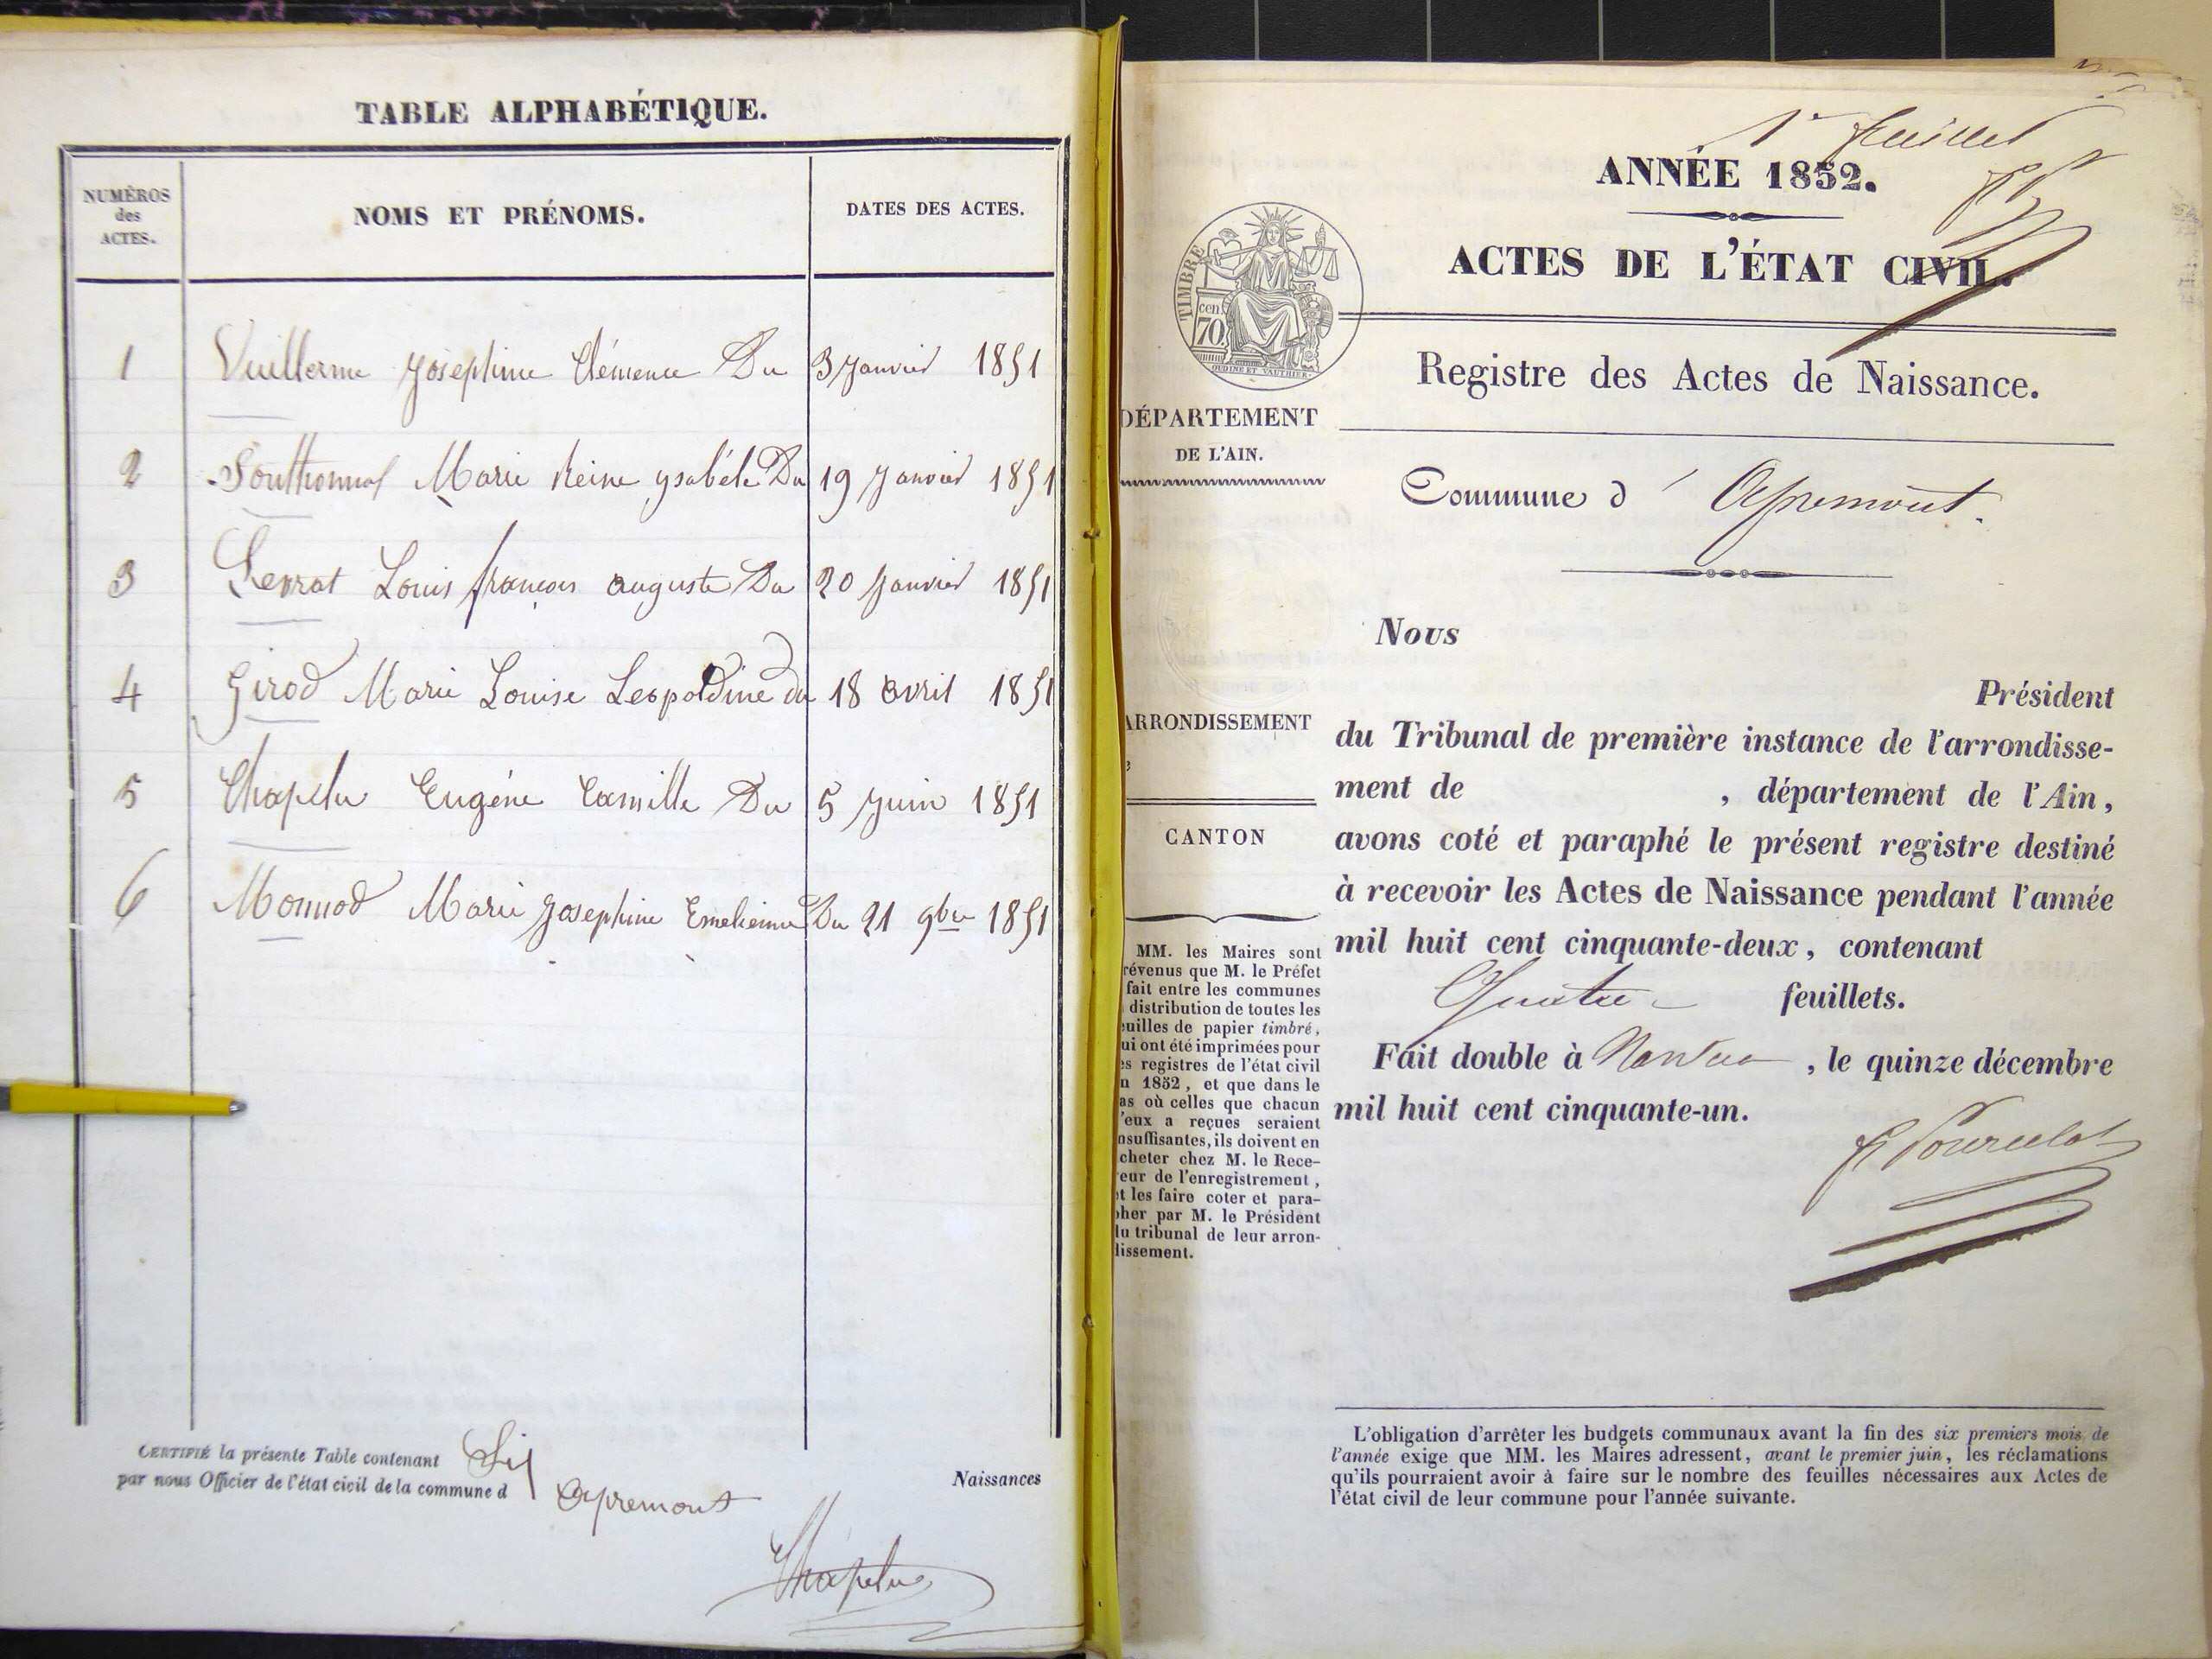 TABLE ALPHABÉTIQUE.
NUMÉROS
des
ACTES.
NOMS ET PRÉNOMS.
DATES DES ACTES.
1 Vuillerme Joséphine Clémence Du 3 Janvier 1851
2 Southonnax Marie Reine ysabéle Du 19 Janvier 1851
3 Serrat Louis françois auguste Du 20 Janvier 1851
4 Girod Marie Louise Leopoldine du 18 avril 1851
5 Chapelu Eugéne Camille Du 5 Juin 1851
6 Monnod Marie Josephine Emelienne Du 21 9bre 1851
CERTIFIÉ la présente Table contenant Six Naissances
par nous Officier de l'état civil de la commune d apremont
Chapelu
1er feuillet
ANNÉE 1852.
ACTES DE L'ÉTAT CIVIL.
TIMBRE
70 cen
OUDINÉ ET VAUTHIER
Registre des Actes de Naissance.
DÉPARTEMENT
DE L'AIN.
Commune d' Apremont.
Nous
Président
ARRONDISSEMENT
du Tribunal de première instance de l'arrondisse-
ment de , département de l'Ain,
avons coté et paraphé le présent registre destiné
à recevoir les Actes de Naissance pendant l'année
mil huit cent cinquante-deux, contenant
Quatre feuillets.
Fait double à Nantua, le quinze décembre
mil huit cent cinquante-un.
CANTON
MM. les Maires sont
révenus que M. le Préfet
fait entre les communes
distribution de toutes les
euilles de papier timbré,
ui ont été imprimées pour
es registres de l'état civil
n 1852, et que dans le
as où celles que chacun
'eux a reçues seraient
nsuffisantes, ils doivent en
cheter chez M. le Rece-
eur de l'enregistrement,
et les faire coter et para-
pher par M. le Président
du tribunal de leur arron-
dissement.
L'obligation d'arrêter les budgets communaux avant la fin des six premiers mois de
l'année exige que MM. les Maires adressent, avant le premier juin, les réclamations
qu'ils pourraient avoir à faire sur le nombre des feuilles nécessaires aux Actes de
l'état civil de leur commune pour l'année suivante.